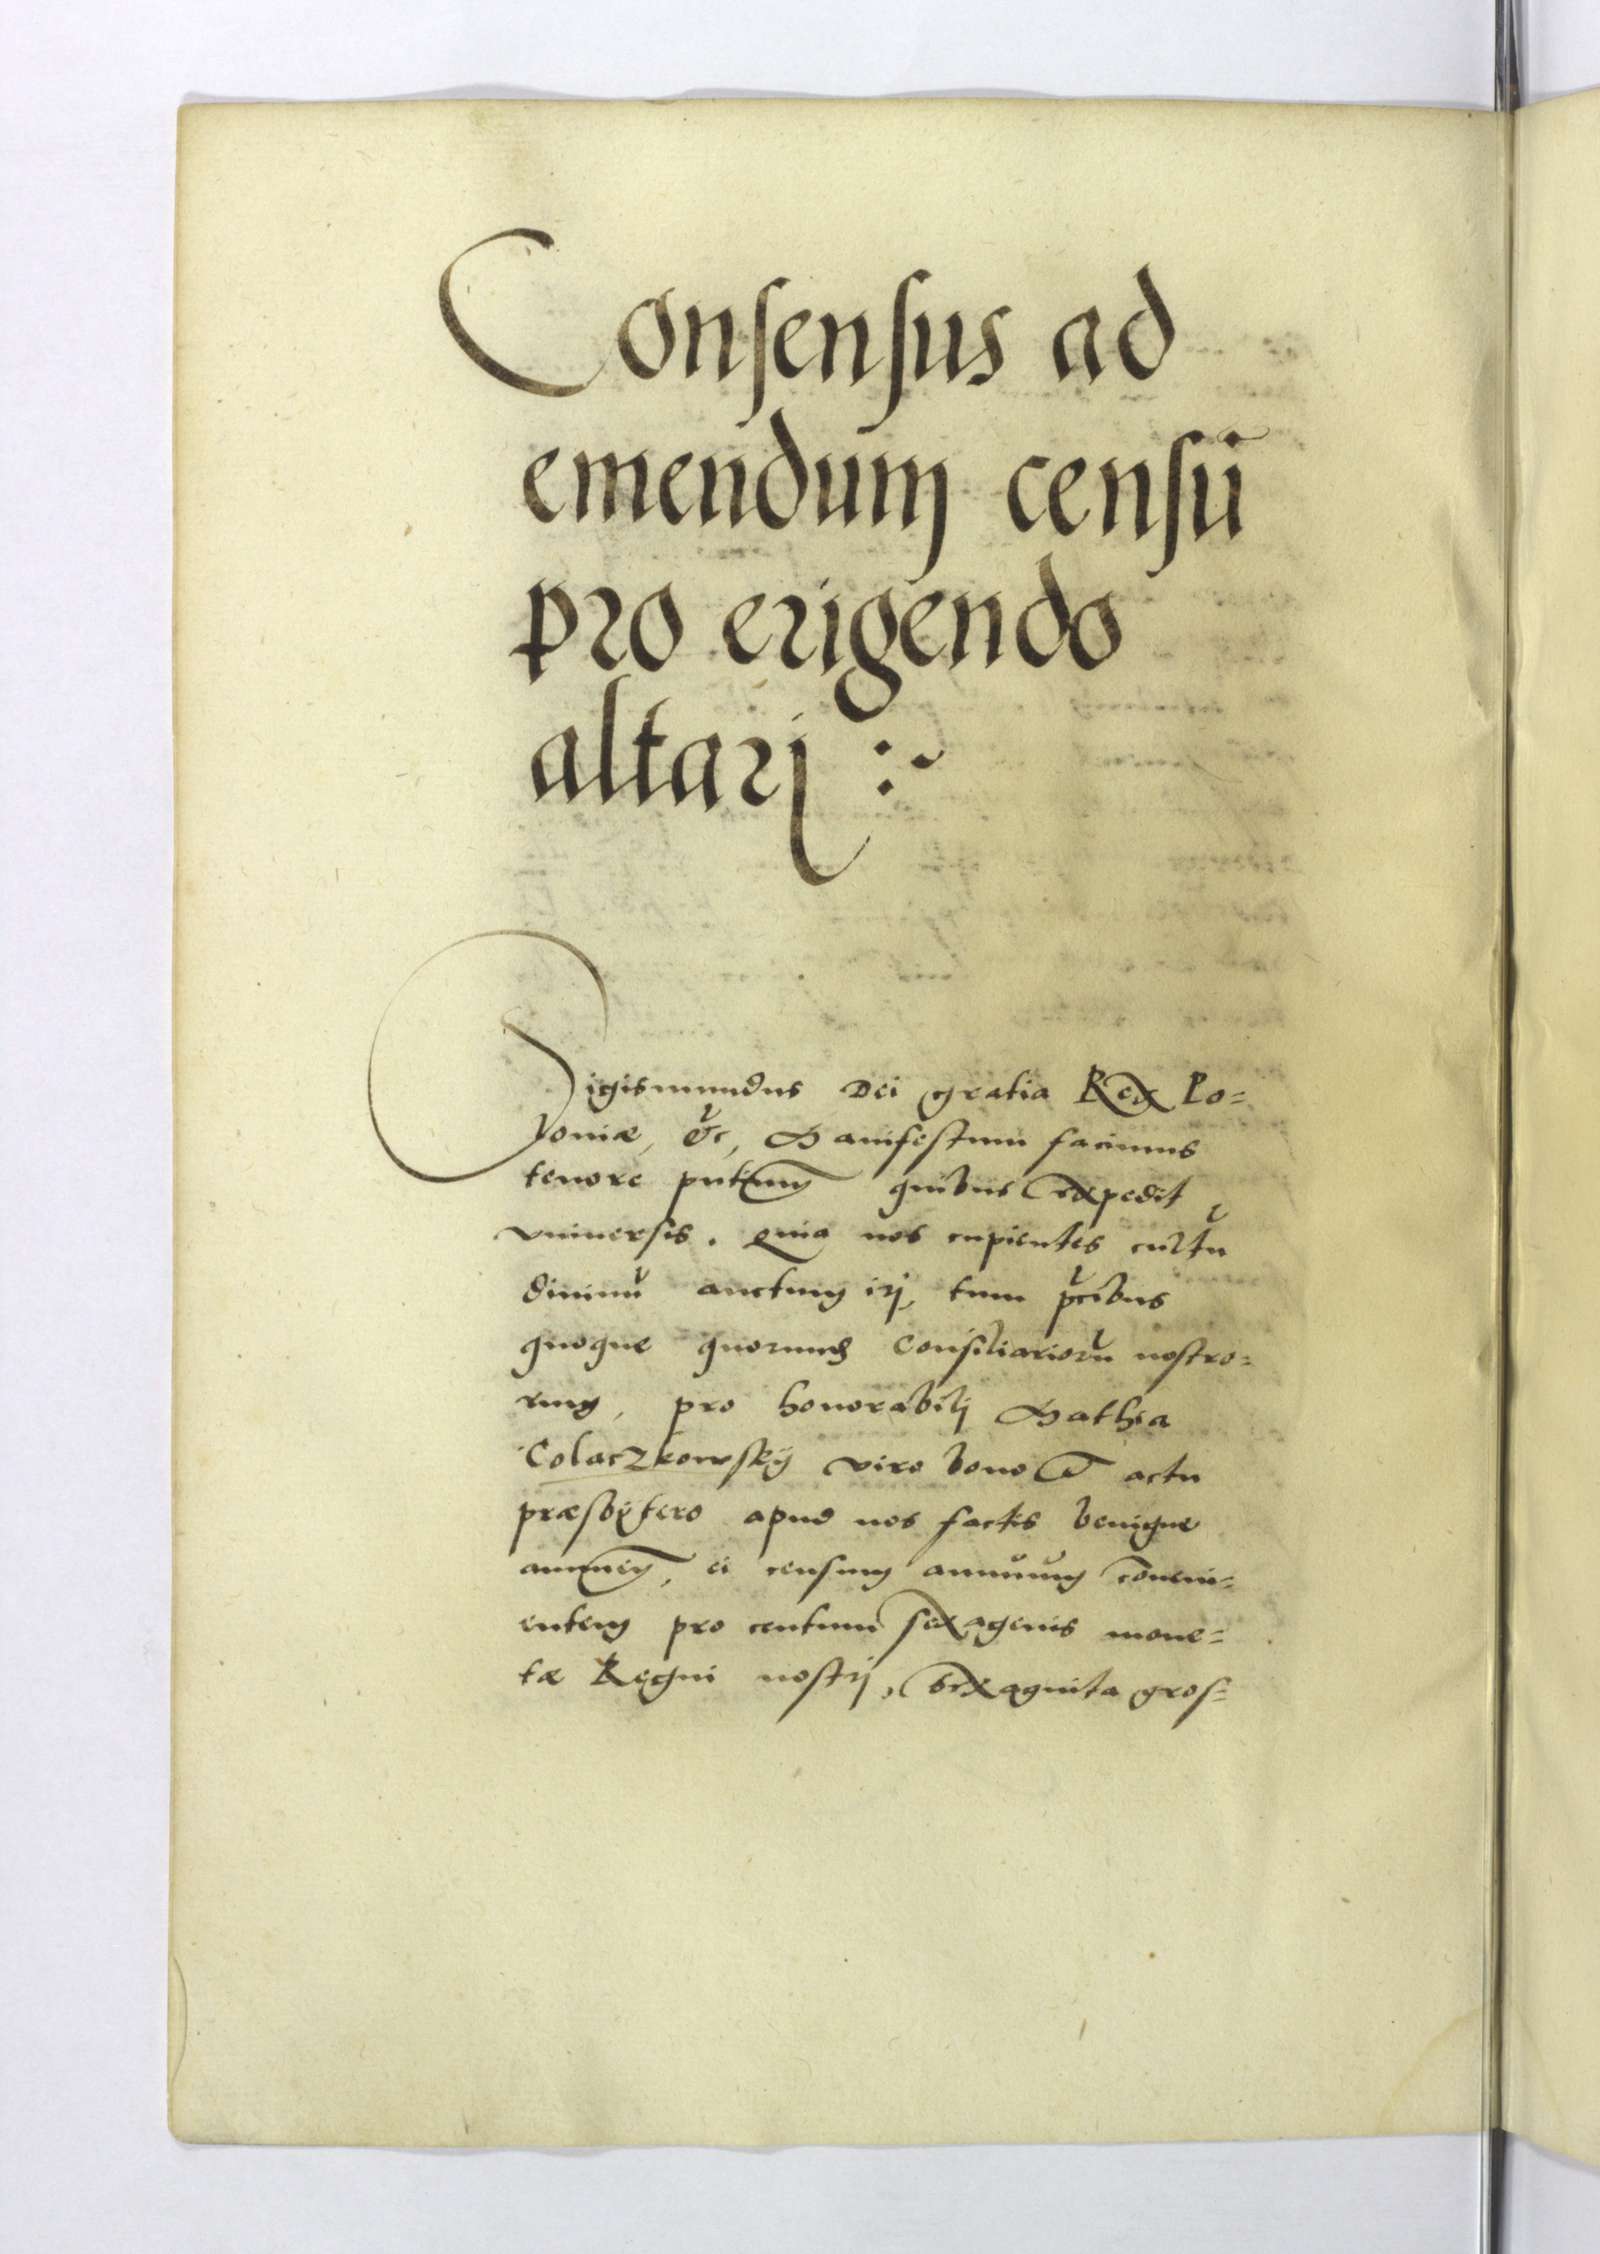 Consensus ad
emendum censū
pro erigendo
altarj :~
Sigismundus Dei gratia Rex Po=
loniæ, &c, Manifestum facimus
tenore pñtium quibus expedit
vniuersis. Quia nos cupientes cultū
diuinū auctum irj, tum p̃cibus
quoque quorund Consiliariorū nostro=
rum, pro honorabilj Mathia
Colaczkowskÿ viro bono et actu
præsbÿtero apud nos factis benigne
annuen, ei censum annuum conueni=
entem pro centum sexagenis mone=
tæ Regni nostrj, sexaginta gros=